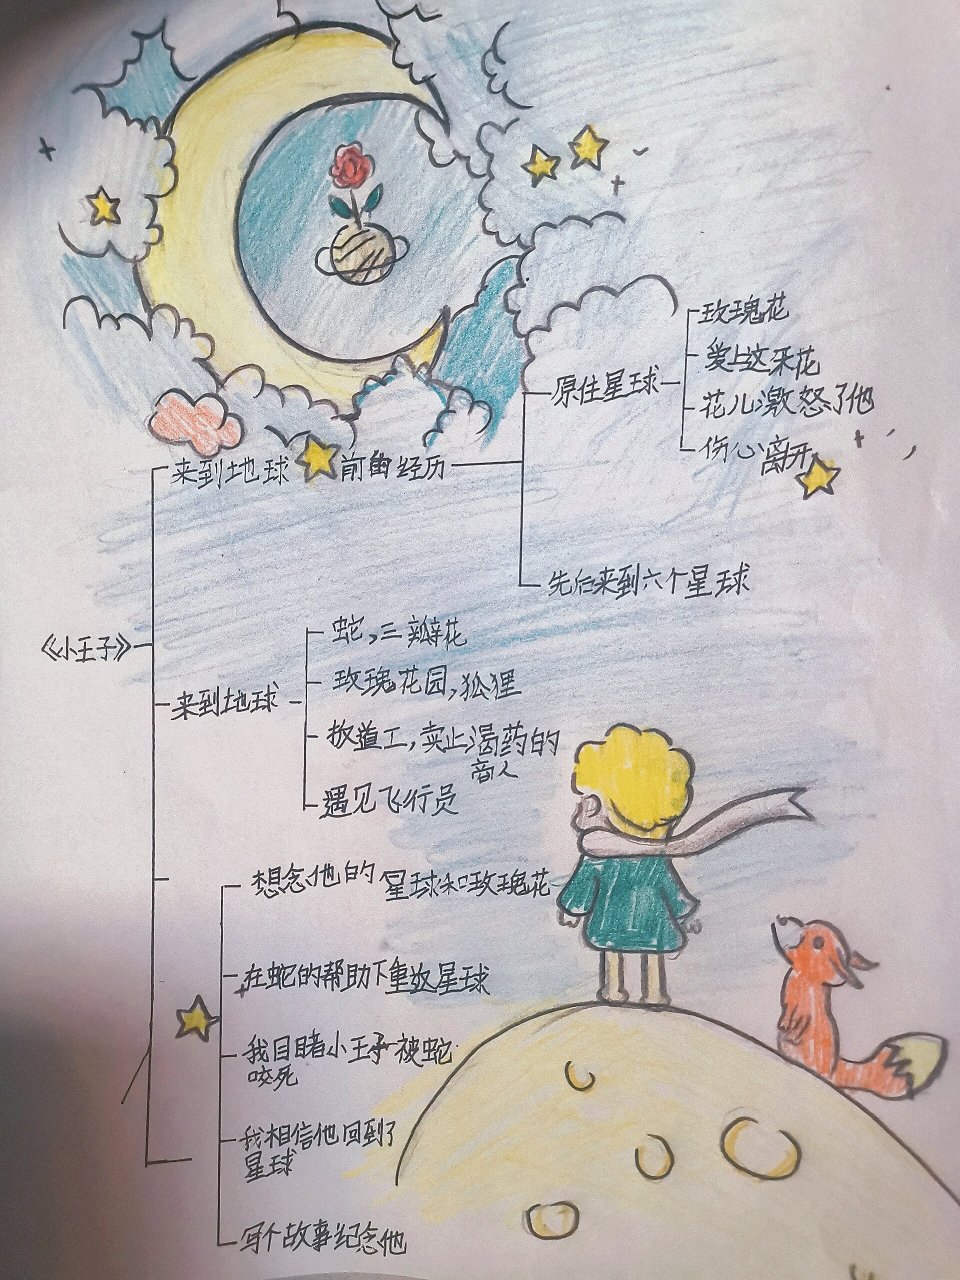 玫瑰花
爱上这朵花
原住星球
花儿激怒了他
伤心离开
来到地球前的经历
先后来到六个星球
《小王子》
蛇,三瓣花
玫瑰花园,狐狸
来到地球
扳道工,卖止渴药的
商人
遇见飞行员
想念他的星球和玫瑰花
在蛇的帮助下重返星球
我目睹小王子被蛇
咬死
我相信他回到了
星球
写个故事纪念他